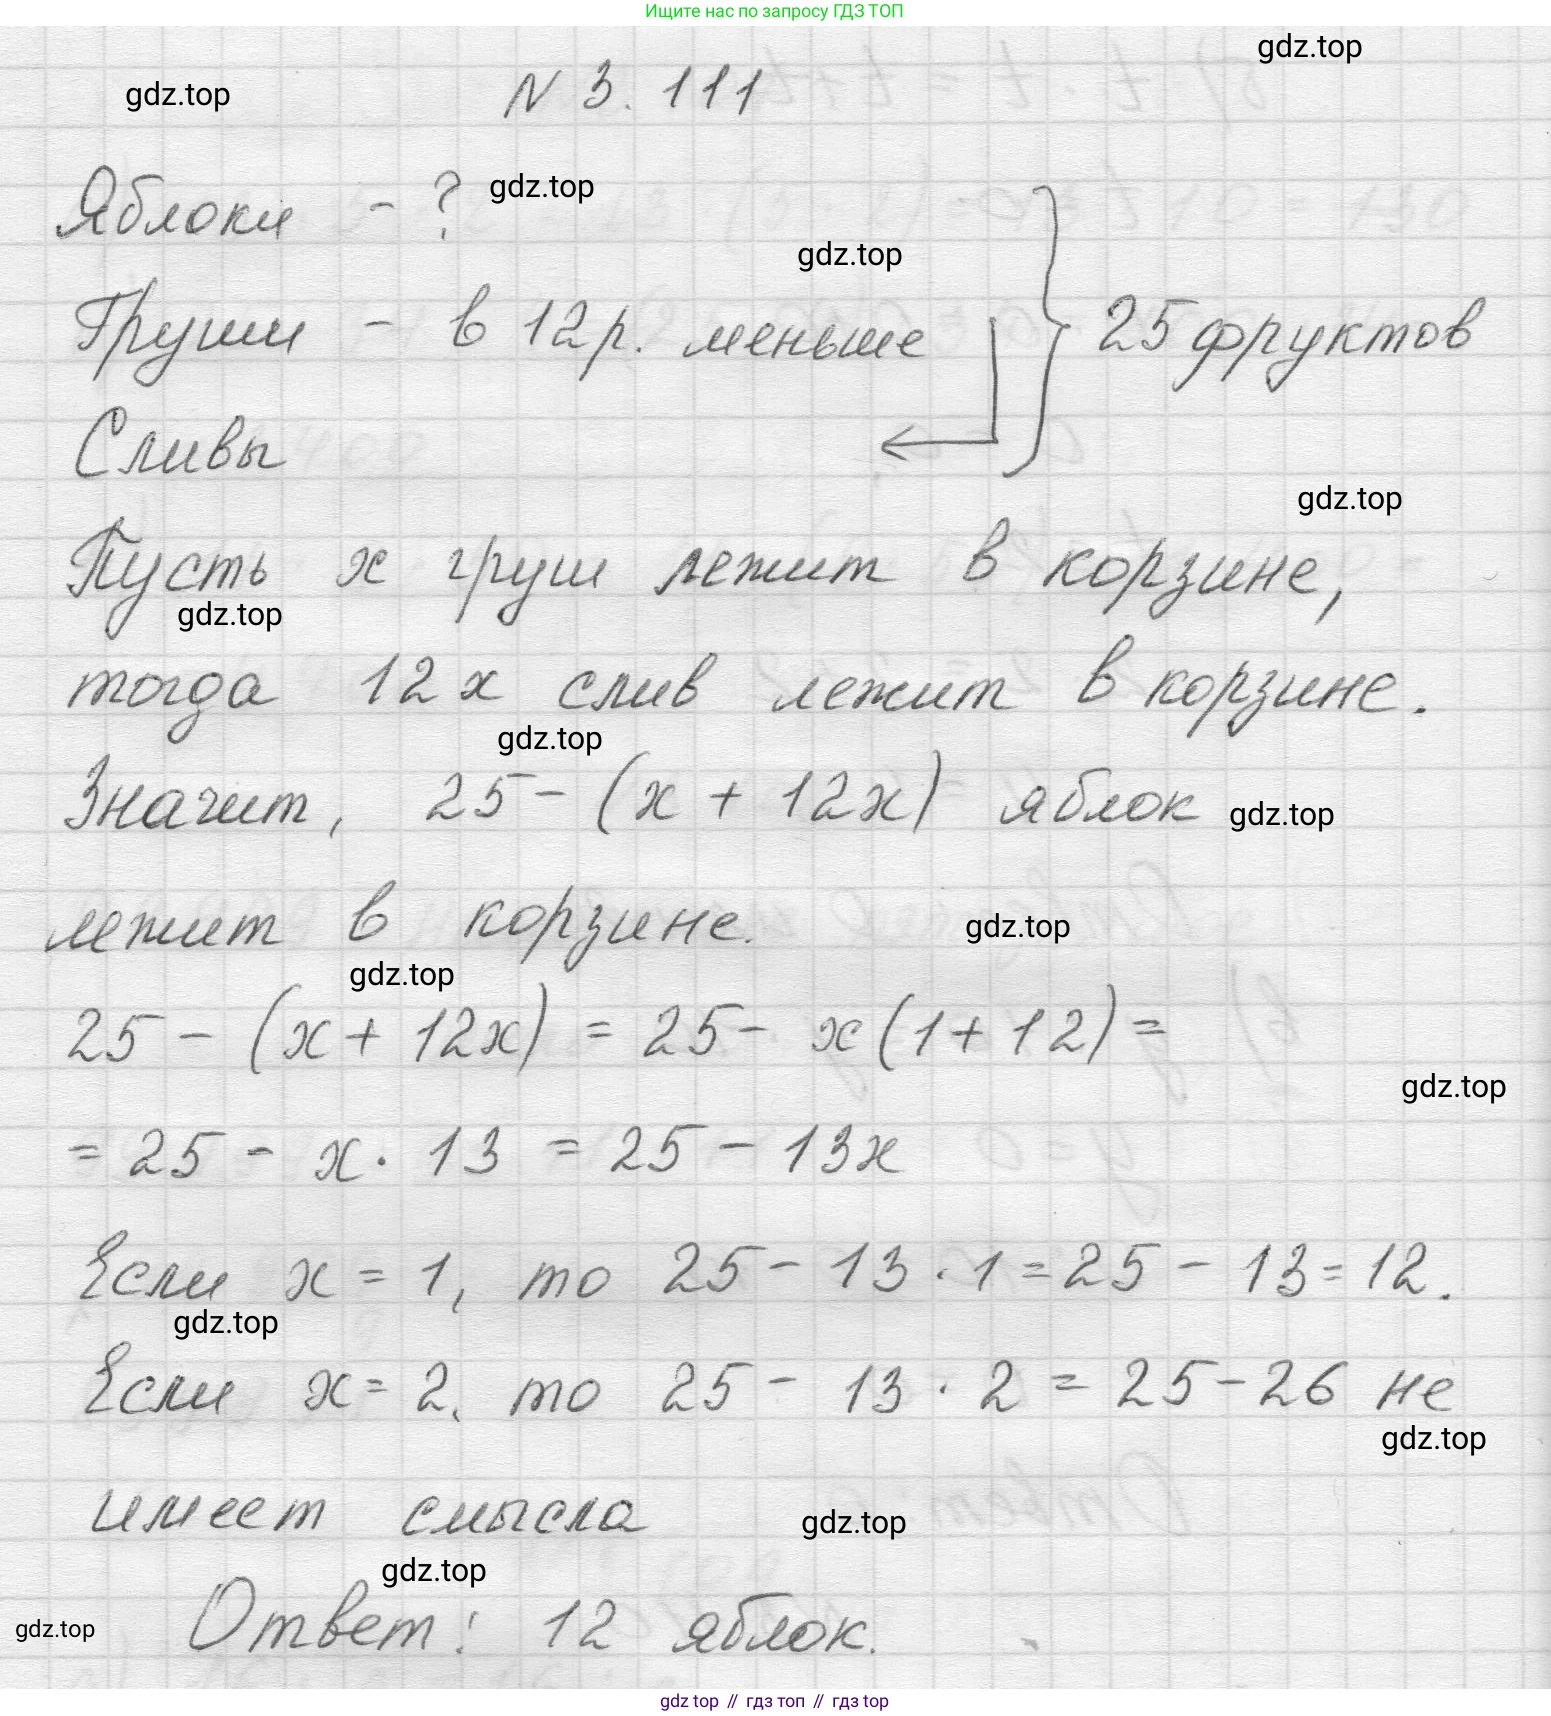 Ищите нас по запросу ГДЗ ТОП
gdz.top
gdz.top
N 3.111
Яблоки - ?
gdz.top
gdz.top
Груши - в 12 р. меньше
25 фруктов
Сливы
gdz.top
Пусть x груш лежит в корзине,
gdz.top
тогда 12x слив лежит в корзине.
gdz.top
Значит, 25 - (x + 12x) яблок
gdz.top
лежит в корзине.
gdz.top
gdz.top
25 - (x + 12x) = 25 - x(1 + 12) =
gdz.top
= 25 - x · 13 = 25 - 13x
Если x = 1, то 25 - 13 · 1 = 25 - 13 = 12.
gdz.top
Если x = 2, то 25 - 13 · 2 = 25 - 26 не
gdz.top
имеет смысла
gdz.top
gdz.top
Ответ: 12 яблок.
gdz.top
gdz top // гдз топ // gdz top